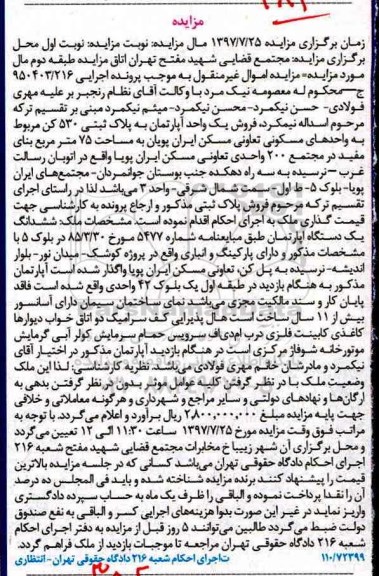 مزایده
زمان برگزاری مزایده ۱۳۹۷/۷/۲۵ مال مزایده: نوبت مزایده: نوبت اول محل
برگزاری مزایده: مجتمع قضایی شهید مفتح تهران اتاق مزایده طبقه دوم مال
مورد مزایده» مزایده اموال غیرمنقول به موجب پرونده اجرایی ۹۵۰۴۰۳/۲۱۶
ج محکوم له معصومه نیک مرد با وکالت آقای نظام رنجبر بر علیه مهری
فولادی- حسن نیکمرد- محسن نیکمرد- میثم نیکمرد مبنی بر تقسیم ترکه
مرحوم اسداله نیمکرد، فروش یک واحد آپارتمان به پلاک ثبتی ۵۳۰ کن مربوط
به واحدهای مسکونی تعاونی مسکن ایران پویان به مساحت ۷۵ متر مربع بنای
مفید در مجتمع ۲۰۰ واحدی تعاونی مسکن ایران پویا واقع در اتوبان رسالت
غرب - نرسیده به سه راه دهکده جنب بوستان جوانمردان- مجتمع‌های ایران
پویا- بلوک ۵- ط اول- سمت شمال شرقی- واحد ۳ می‌باشد لذا در راستای اجرای
تقسیم ترکه مرحوم فروش پلاک ثبتی مذکور و ارجاع پرونده به کارشناسی جهت
قیمت گذاری ملک به اجرای احکام اقدام نموده است. مشخصات ملک: ششدانگ
یک دستگاه آپارتمان طبق مبایعنامه شماره ۵۴۷۷ مورخ ۸۵/۳/۳۰ در بلوک ۵ با
مشخصات مذکور و دارای پارکینگ و انباری واقع در پروژه کوشک- میدان نور- بلوار
اندیشه- نرسیده به پل کن، تعاونی مسکن ایران پویا واگذار شده است آپارتمان
مذکور به هنگام بازدید در طبقه اول یک بلوک ۴۲ واحدی واقع شده است فاقد
پایان کار و سند مالکیت مجزی می‌باشد نمای ساختمان سیمان دارای آسانسور
بیش از ۱۱ سال ساخت است هال پذیرایی کف سرامیک دو اتاق خواب دیوارها
کاغذی کابینت فلزی درب ام‌دی‌اف سرویس حمام سرمایش کولر آبی گرمایش
موتورخانه شوفاژ مرکزی است در هنگام بازدید آپارتمان مذکور در اختیار آقای
نیکمرد و مادرشان خانم مهری فولادی می‌باشد. نظریه کارشناسی: لذا این ملک
وضعیت ملک با در نظر گرفتن کلیه عوامل موثر بدون در نظر گرفتن بدهی به
ارگان‌ها و نهادهای دولتی و سایر مراجع و شهرداری و هرگونه معاملاتی و خلافی
جهت پایه مزایده مبلغ ۲٫۸۰۰٫۰۰۰٫۰۰۰ ریال برآورد و اعلام می‌گردد. با توجه به
مراتب فوق وقت مزایده مورخ ۱۳۹۷/۷/۲۵ ساعت ۱۱:۳۰ الی ۱۲ تعیین می‌گردد
و محل برگزاری آن شهر زیباخ مخابرات مجتمع قضایی شهید مفتح شعبه ۲۱۶
اجرای احکام دادگاه حقوقی تهران می‌باشد کسانی که در جلسه مزایده بالاترین
قیمت را پیشنهاد کنند برنده مزایده شناخته شده و باید فی المجلس ده درصد
آن را نقدا پرداخت نموده و الباقی را ظرف یک ماه به حساب سپرده دادگستری
واریز نماید در غیر این صورت بدوا هزینه‌های اجرایی کسر و الباقی به نفع صندوق
دولت ضبط می‌گردد طالبین می‌توانند ۵ روز قبل از مزایده به دفتر اجرای احکام
شعبه ۲۱۶ دادگاه حقوقی تهران مراجعه تا موجبات بازدید از ملک فراهم گردد.
۱۱۰/۷۲۳۹۹ ت اجرای احکام شعبه ۲۱۶ دادگاه حقوقی تهران - انتظاری